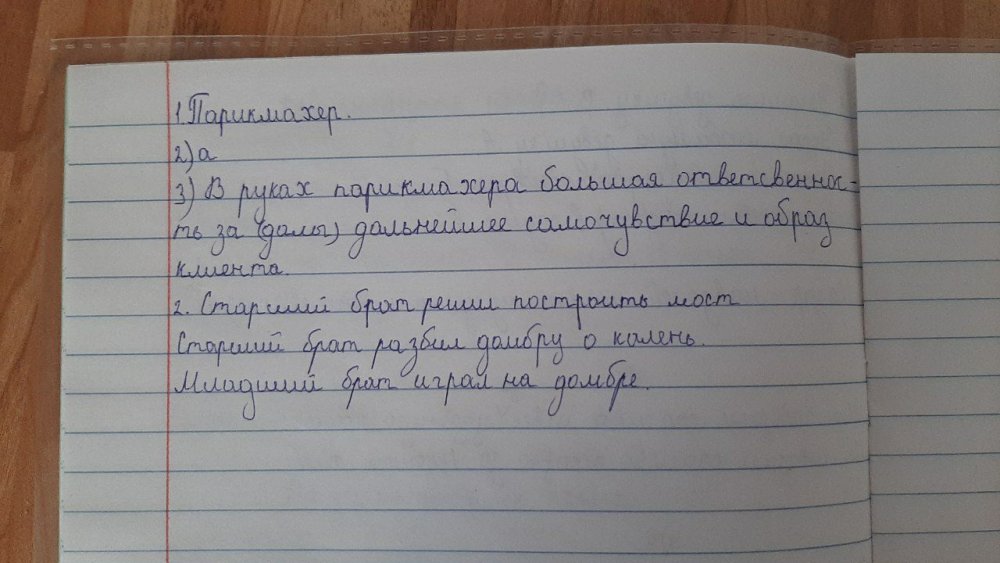 1.Парикмахер.
2) а
3) В руках парикмахера большая ответсвеннос-
ть за (далы) дальнейшее самочувствие и образ
клиента.
2. Старший брат решил построить мост
Старший брат разбил домбру о калень.
Младший брат играл на домбре.